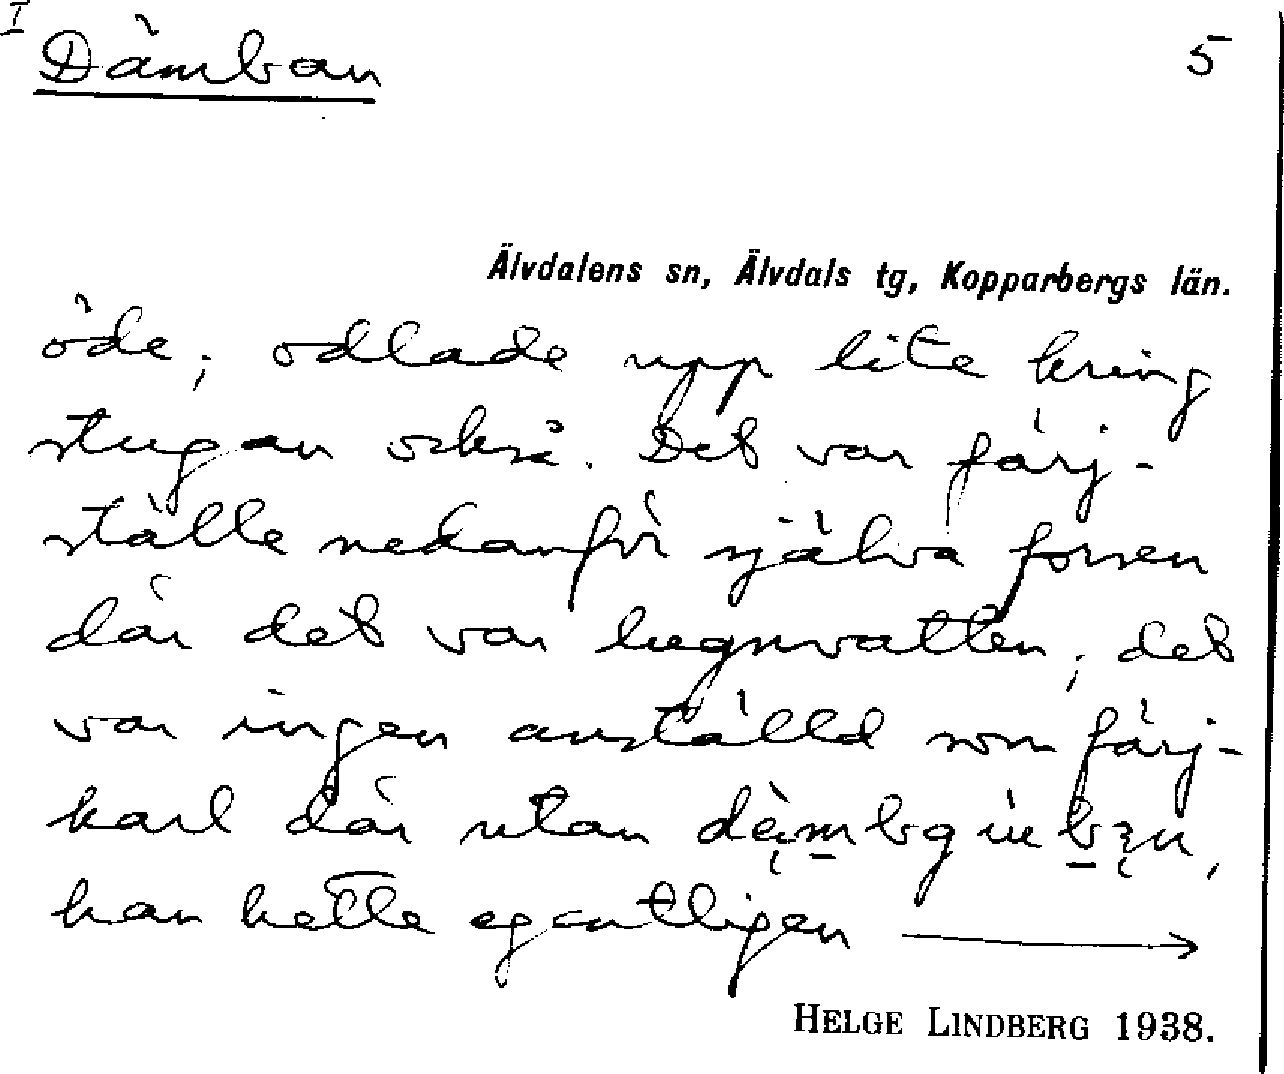 I
Dämban 5
Älvdalens sn, Älvdals tg, Kopparbergs län.
öde; odlade upp lite kring
stugan också. Det var färj-
ställe nedanför själva forsen
där det var lugnvatten; det
var ingen anställd som färj-
karl där utan
han hette egentligen →
HELGE LINDBERG 1938.